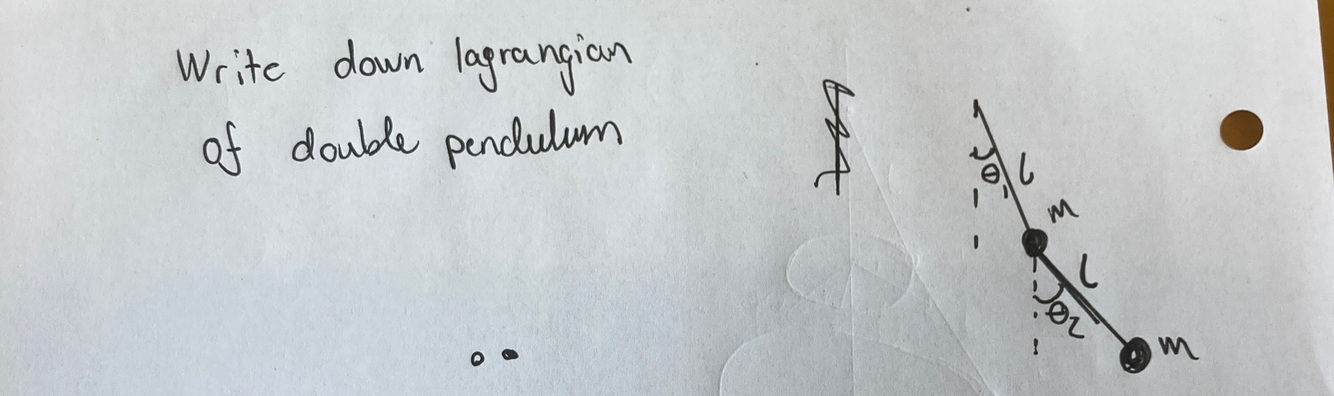 Write down lagrangian
of double pendulum
θ₁ l
m
l
θ₂
m